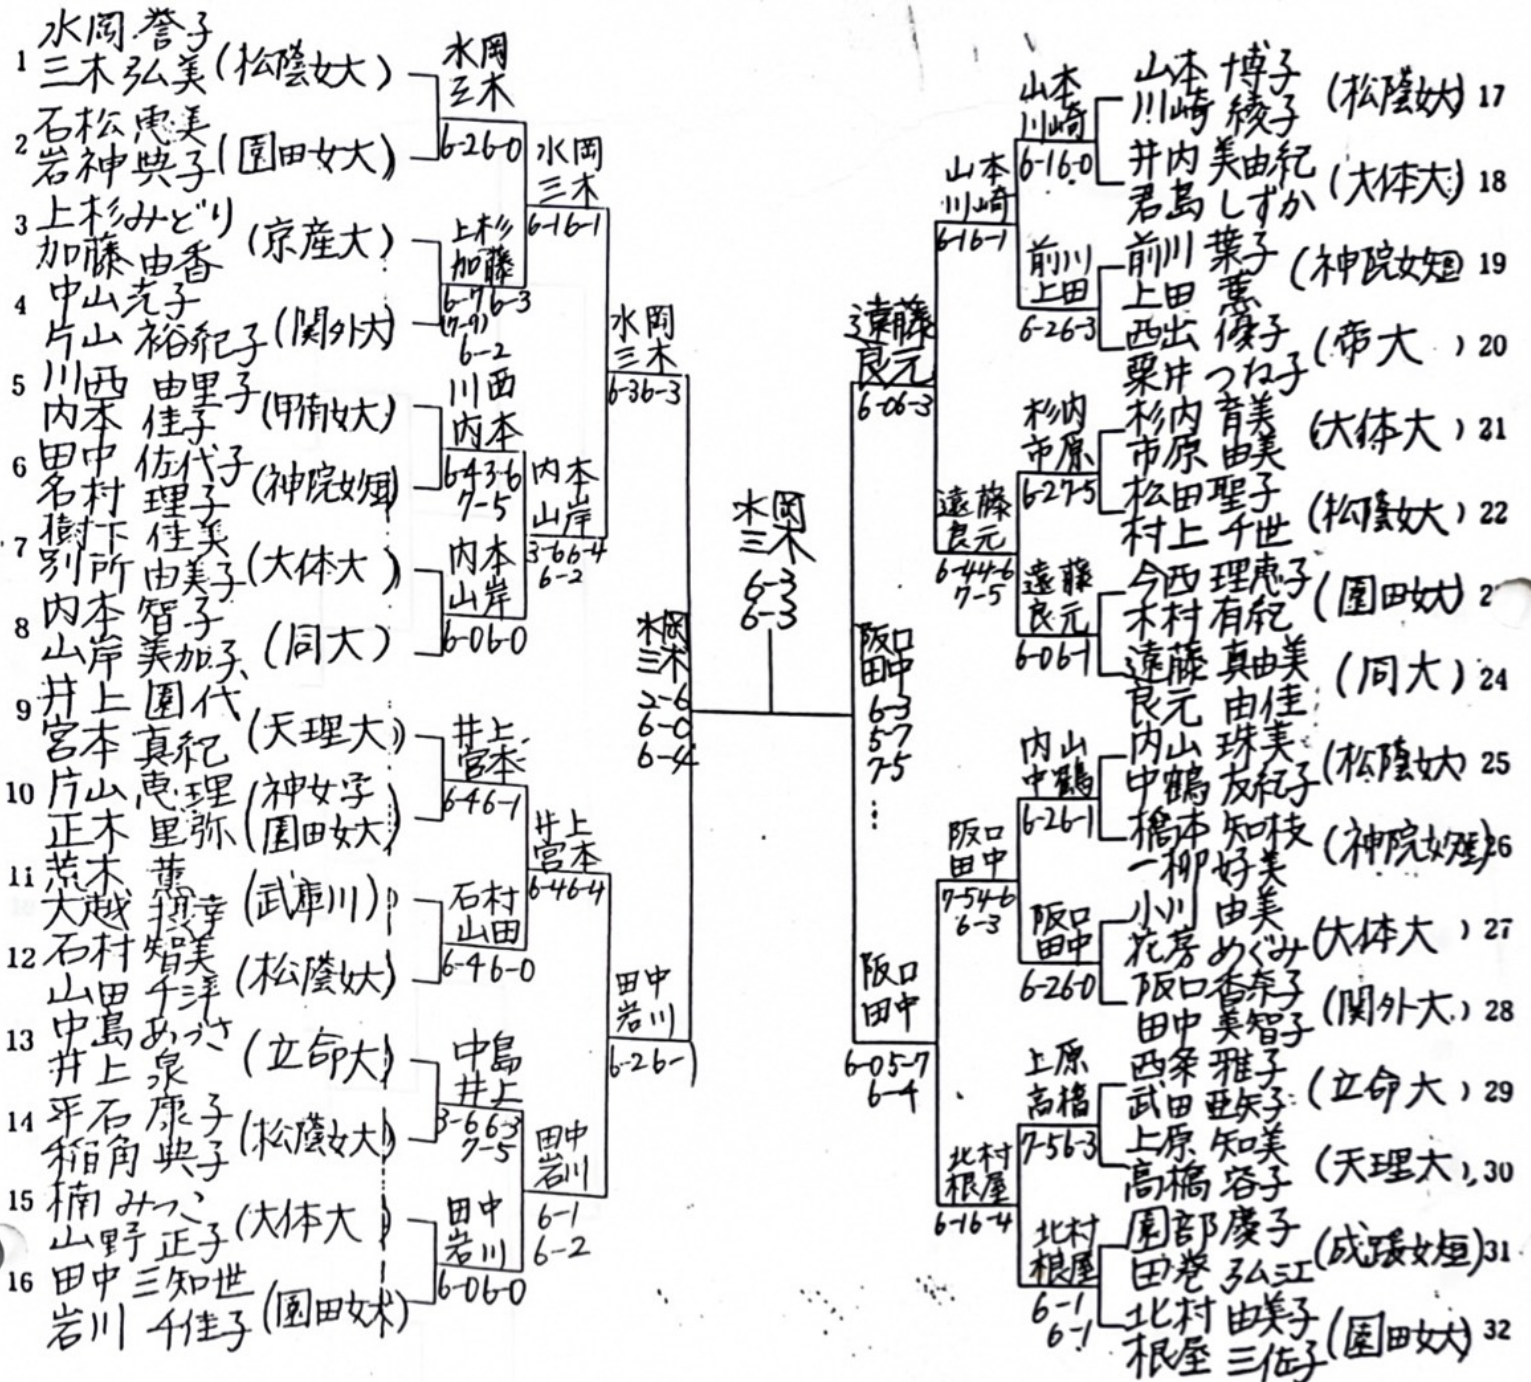 水岡 誉子
1 三木 弘美 (松蔭女大)
石松 恵美
2 岩神 典子 (園田女大)
3 上杉 みどり
加藤 由香 (京産大)
4 中山 克子
片山 裕紀子 (関外大)
5 川西 由里子
内本 佳子 (甲南女大)
6 田中 佐代子
名村 理子 (神院女短)
7 樹下 佳美
別所 由美子 (大体大)
8 内本 智子
山岸 美加子 (同大)
9 井上 園代
宮本 真紀 (天理大)
10 片山 恵理 (神女学)
正木 里弥 (園田女大)
11 荒木 薫
大越 (武庫川)
12 石村 智美
山田 千洋 (松蔭女大)
13 中島 あづさ
井上 泉 (立命大)
14 平石 康子
稲角 典子 (松蔭女大)
15 楠 みつこ
山野 正子 (大体大)
16 田中 三知世
岩川 千佳子 (園田女大)
水岡
三木
6-2 6-0
上杉
加藤
6-7 6-3
(7-9)
6-2
川西
内本
6-4 3-6
7-5
内本
山岸
6-0 6-0
井上
宮本
6-4 6-1
石村
山田
6-4 6-0
中島
井上
3-6 6-3
7-5
田中
岩川
6-0 6-0
水岡
三木
6-1 6-1
内本
山岸
3-6 6-4
6-2
井上
宮本
6-4 6-4
田中
岩川
6-1
6-2
水岡
三木
6-3 6-3
田中
岩川
6-2 6-1
水岡
三木
2-6
6-0
6-4
水岡
三木
6-3
6-3
阪口
田中
6-3
5-7
7-5
遠藤
良元
6-0 6-3
阪口
田中
6-0 5-7
6-4
山本
川崎
6-1 6-1
遠藤
良元
6-4 4-6
7-5
阪口
田中
7-5 4-6
6-3
北村
根屋
6-1 6-4
山本
川崎
6-1 6-0
前川
上田
6-2 6-3
杉内
市原
6-2 7-5
遠藤
良元
6-0 6-1
内山
中鶴
6-2 6-1
阪口
田中
6-2 6-0
上原
高橋
7-5 6-3
北村
根屋
6-1
6-1
山本 博子
川崎 綾子 (松蔭女大) 17
井内 美由紀
君島 しずか (大体大) 18
前川 葉子
上田 恵 (神院女短) 19
西出 優子
粟井 つね子 (帝大) 20
杉内 育美
市原 由美 (大体大) 21
松田 聖子
村上 千世 (松蔭女大) 22
今西 理恵子
木村 有紀 (園田女大) 2
遠藤 真由美
良元 由佳 (同大) 24
内山 珠美
中鶴 友紀子 (松蔭女大) 25
橋本 知枝
一柳 好美 (神院女短) 26
小川 由美
花房 めぐみ (大体大) 27
阪口 香奈子
田中 美智子 (関外大) 28
西条 雅子
武田 亜矢子 (立命大) 29
上原 知美
高橋 容子 (天理大) 30
園部 慶子
田巻 弘江 (成蹊女短) 31
北村 由美子
根屋 三佐子 (園田女大) 32